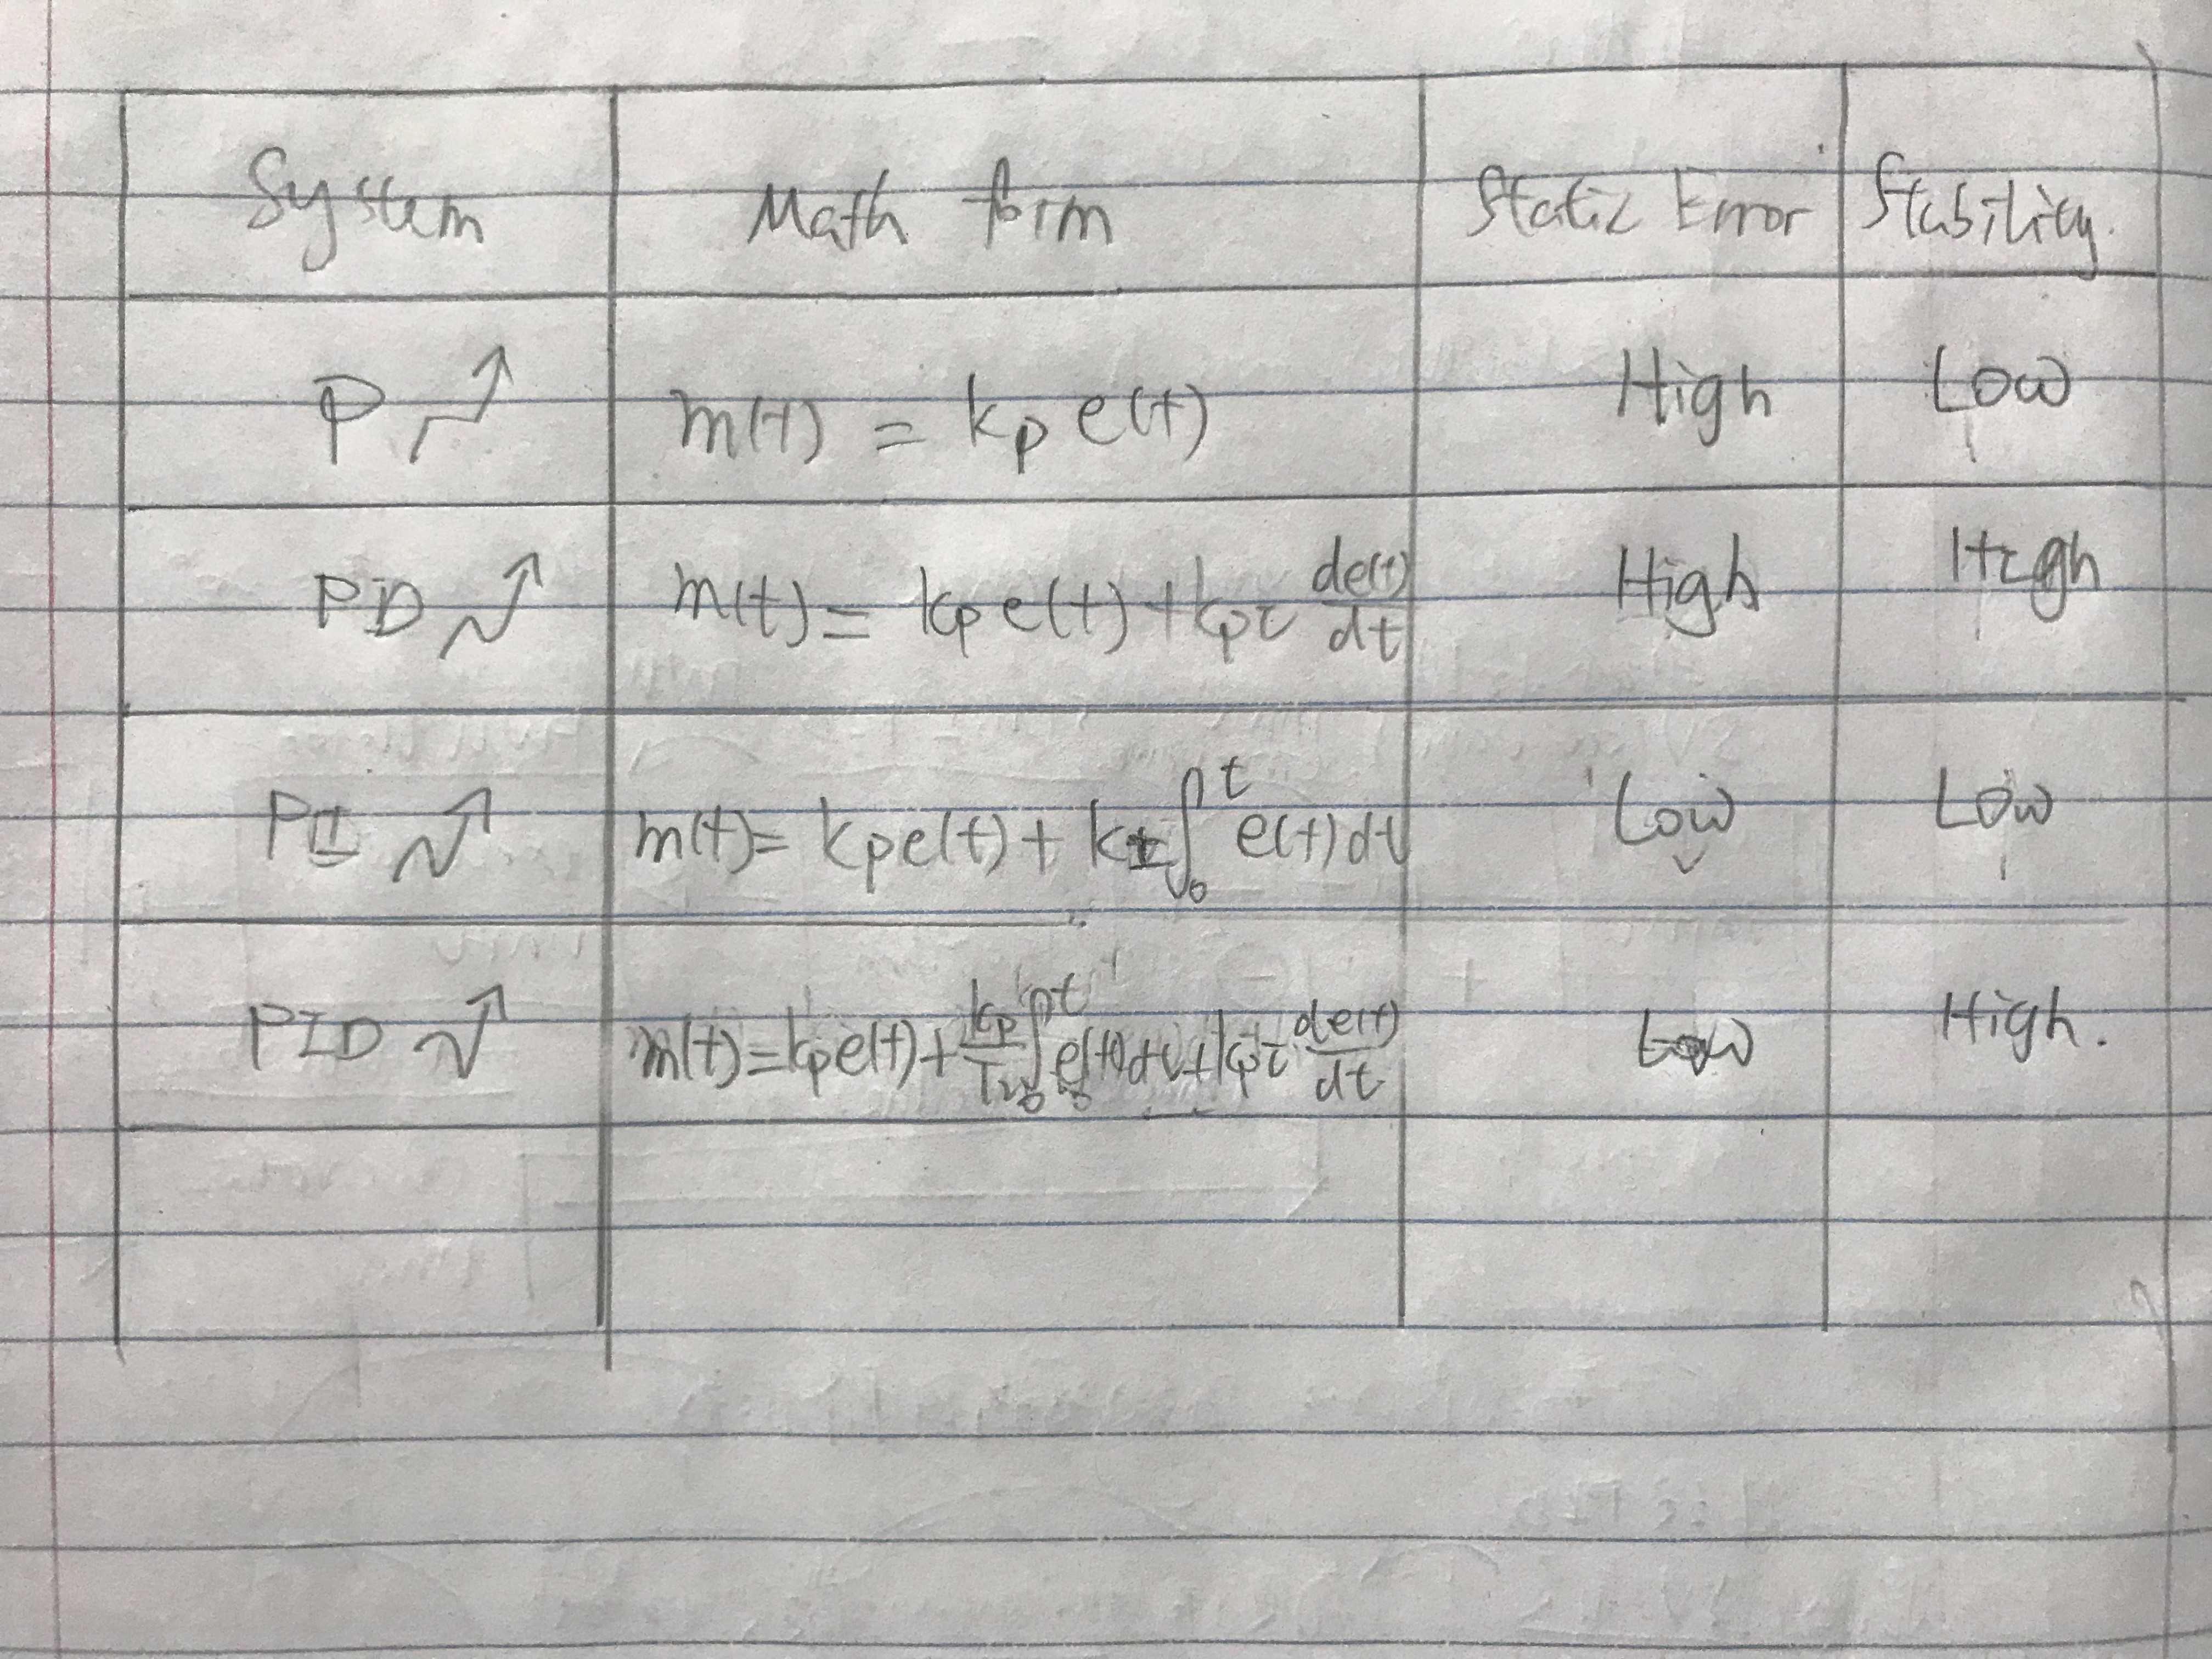 System Math form Static Error Stability.
P m(t) = kp e(t) High Low
PD m(t) = kp e(t) + kp τ de(t)/dt High High
PI m(t) = kp e(t) + kI ∫₀ᵗ e(t) dt Low Low
PID m(t) = kp e(t) + kp/TI ∫₀ᵗ e(t) dt + kp τ de(t)/dt Low High.